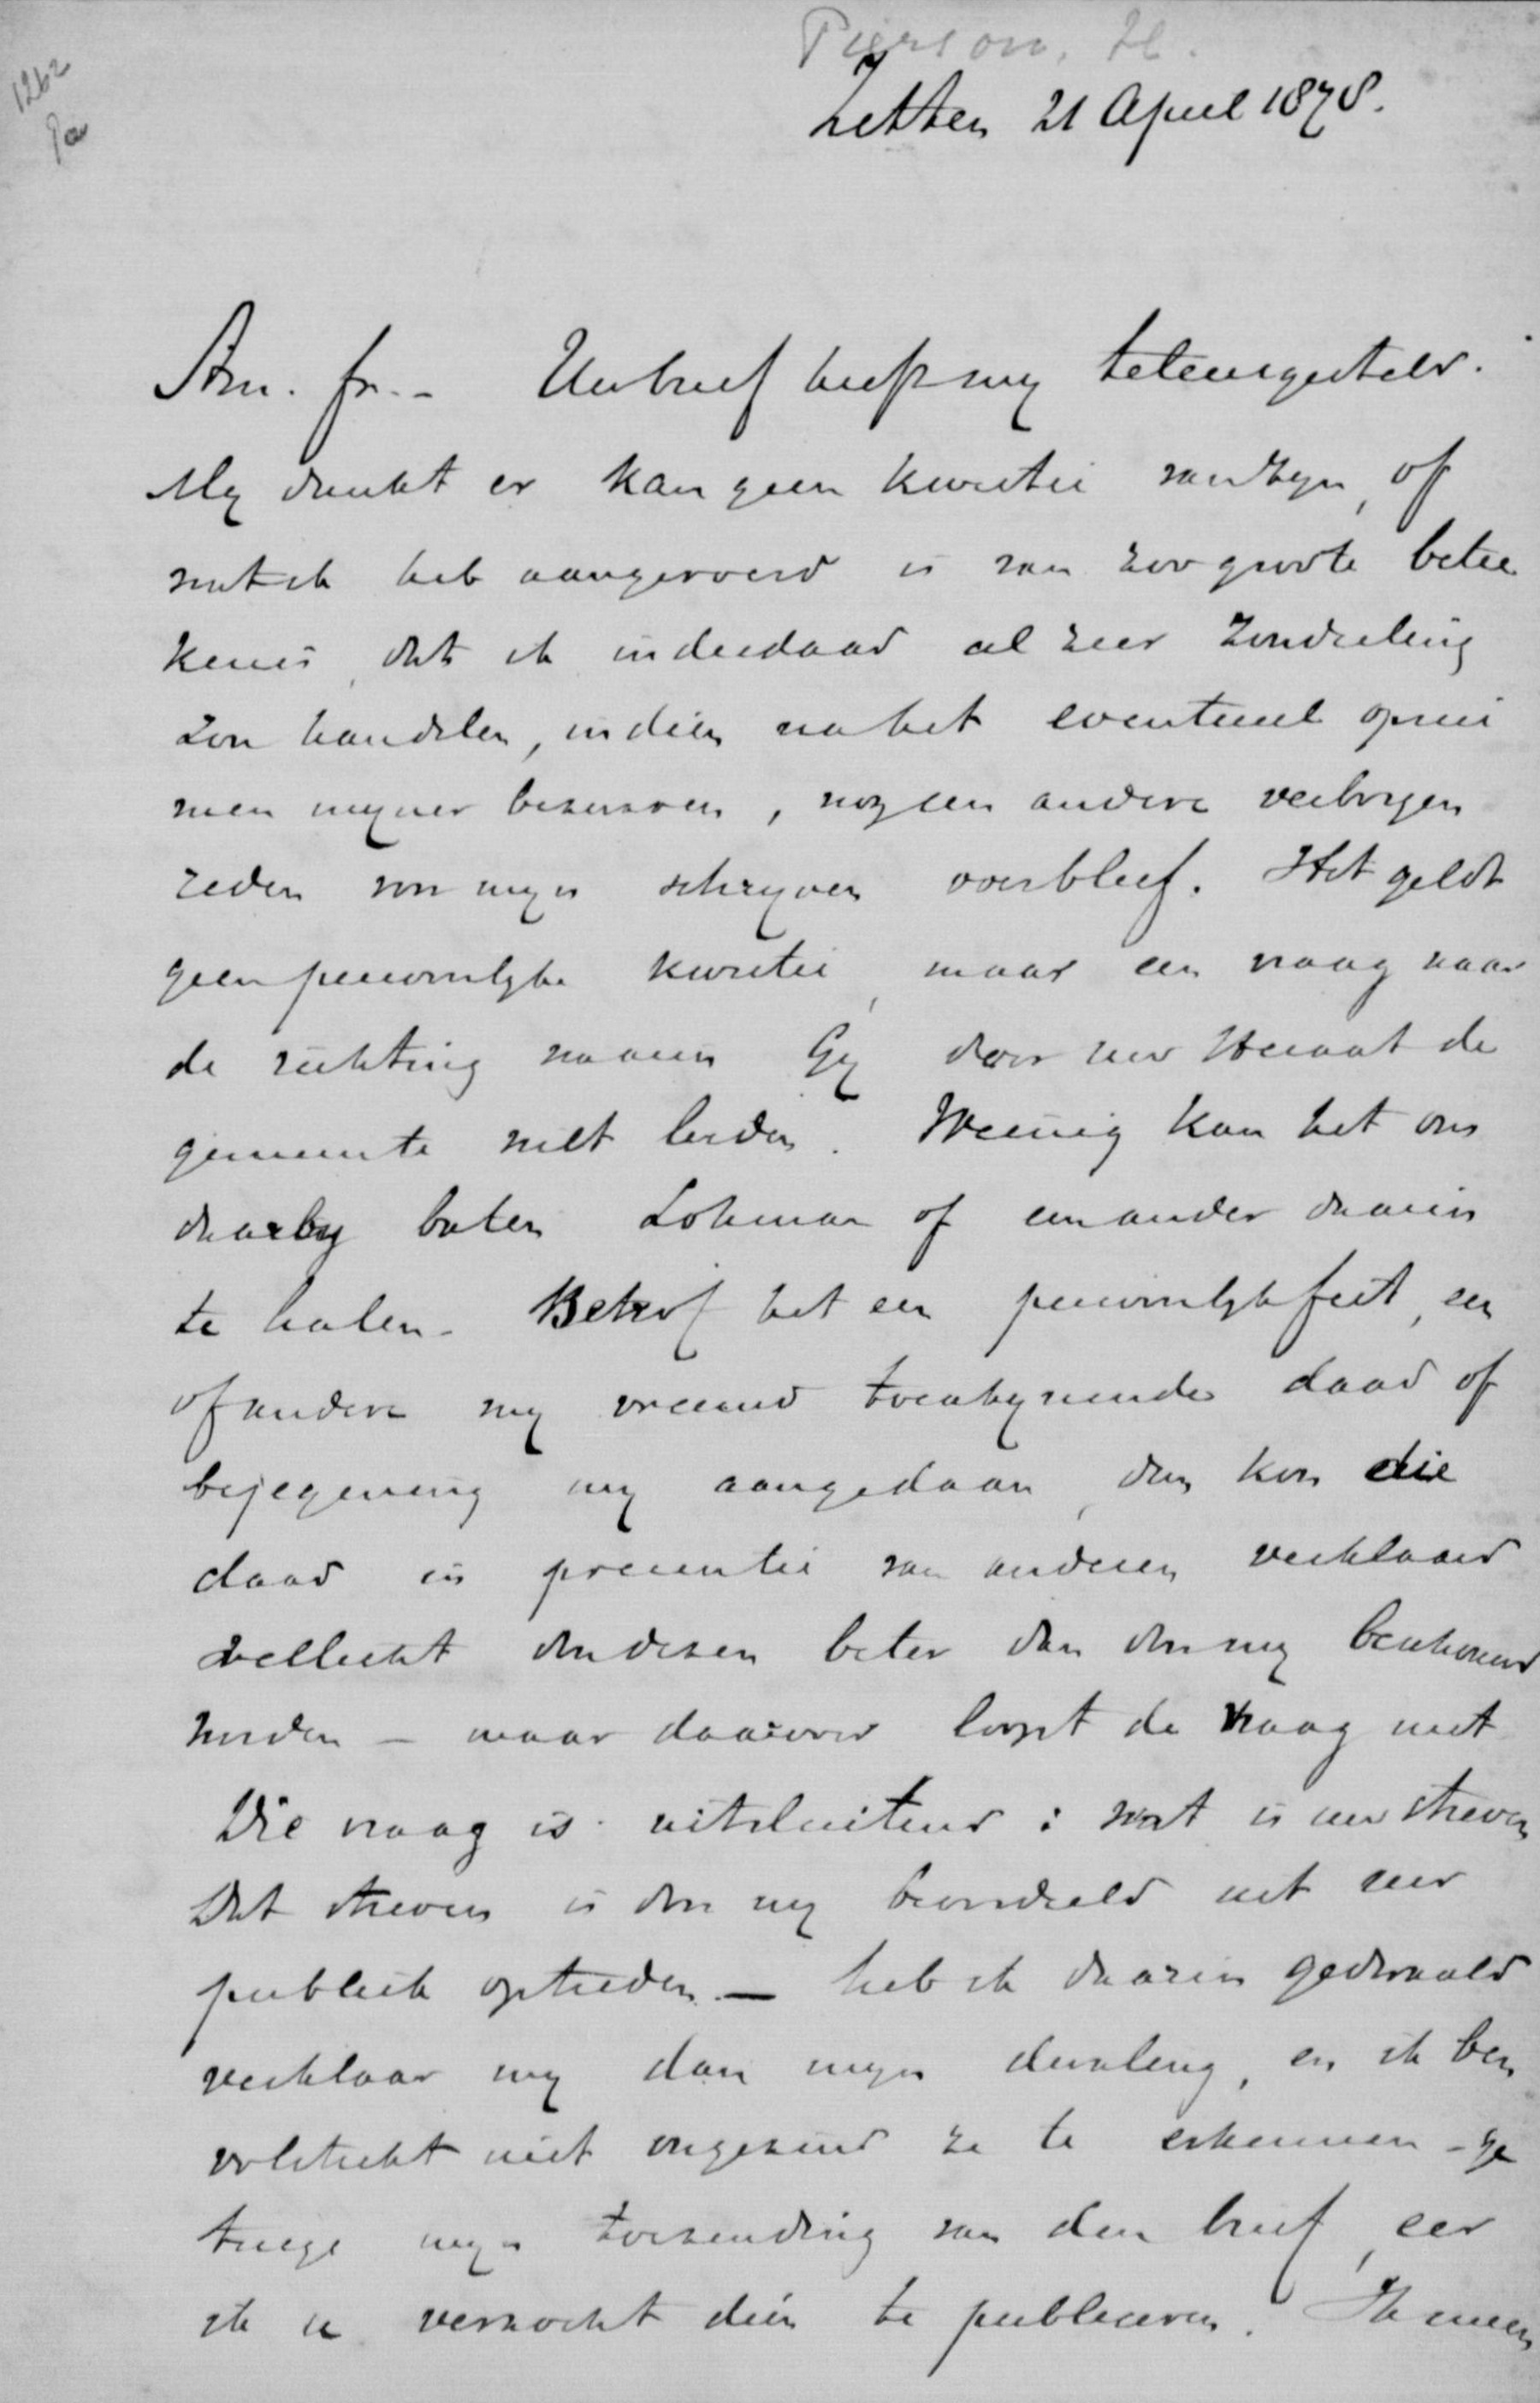 Pierson, H.
1262
Pa
Zetten 21 April 1878.
Am. fr. - Uw brief heeft my teleurgesteld.
My dunkt er kan geen kwestie van zyn, of
wat ik heb aangevoerd is van zoo groote betee
kenis, dat ik inderdaad al zeer zonderling
zou handelen, indien na het eventueel oprui
men myner bezwaren, nog een andere verborgen
reden voor myn schryven overbleef. Het geldt
geen persoonlyke kwestie, maar een vraag naar
de richting waarin Gy door uw Heraut de
gemeente wilt leiden. Weinig kan het ons
daarby baten Lohman of een ander daarin
te halen. Betrof het een persoonlyk feit, een
of andere my vreemd toeschynende daad of
bejegening my aangedaan, dan kon die
daad in presentie van anderen verklaard
wellicht door dezen beter dan door my beschouwd
worden - maar daarover loopt de vraag niet
Die vraag is uitsluitend: wat is uw streven
Dat streven is door my beoordeeld uit uw
publiek optreden - heb ik daarin gedwaald
verklaar my dan myn dwaling, en ik ben
volstrekt niet ongezind ze te erkennen - ge
tuige myn toezending van den brief, eer
ik u verzocht dien te publiceren. Ik meen